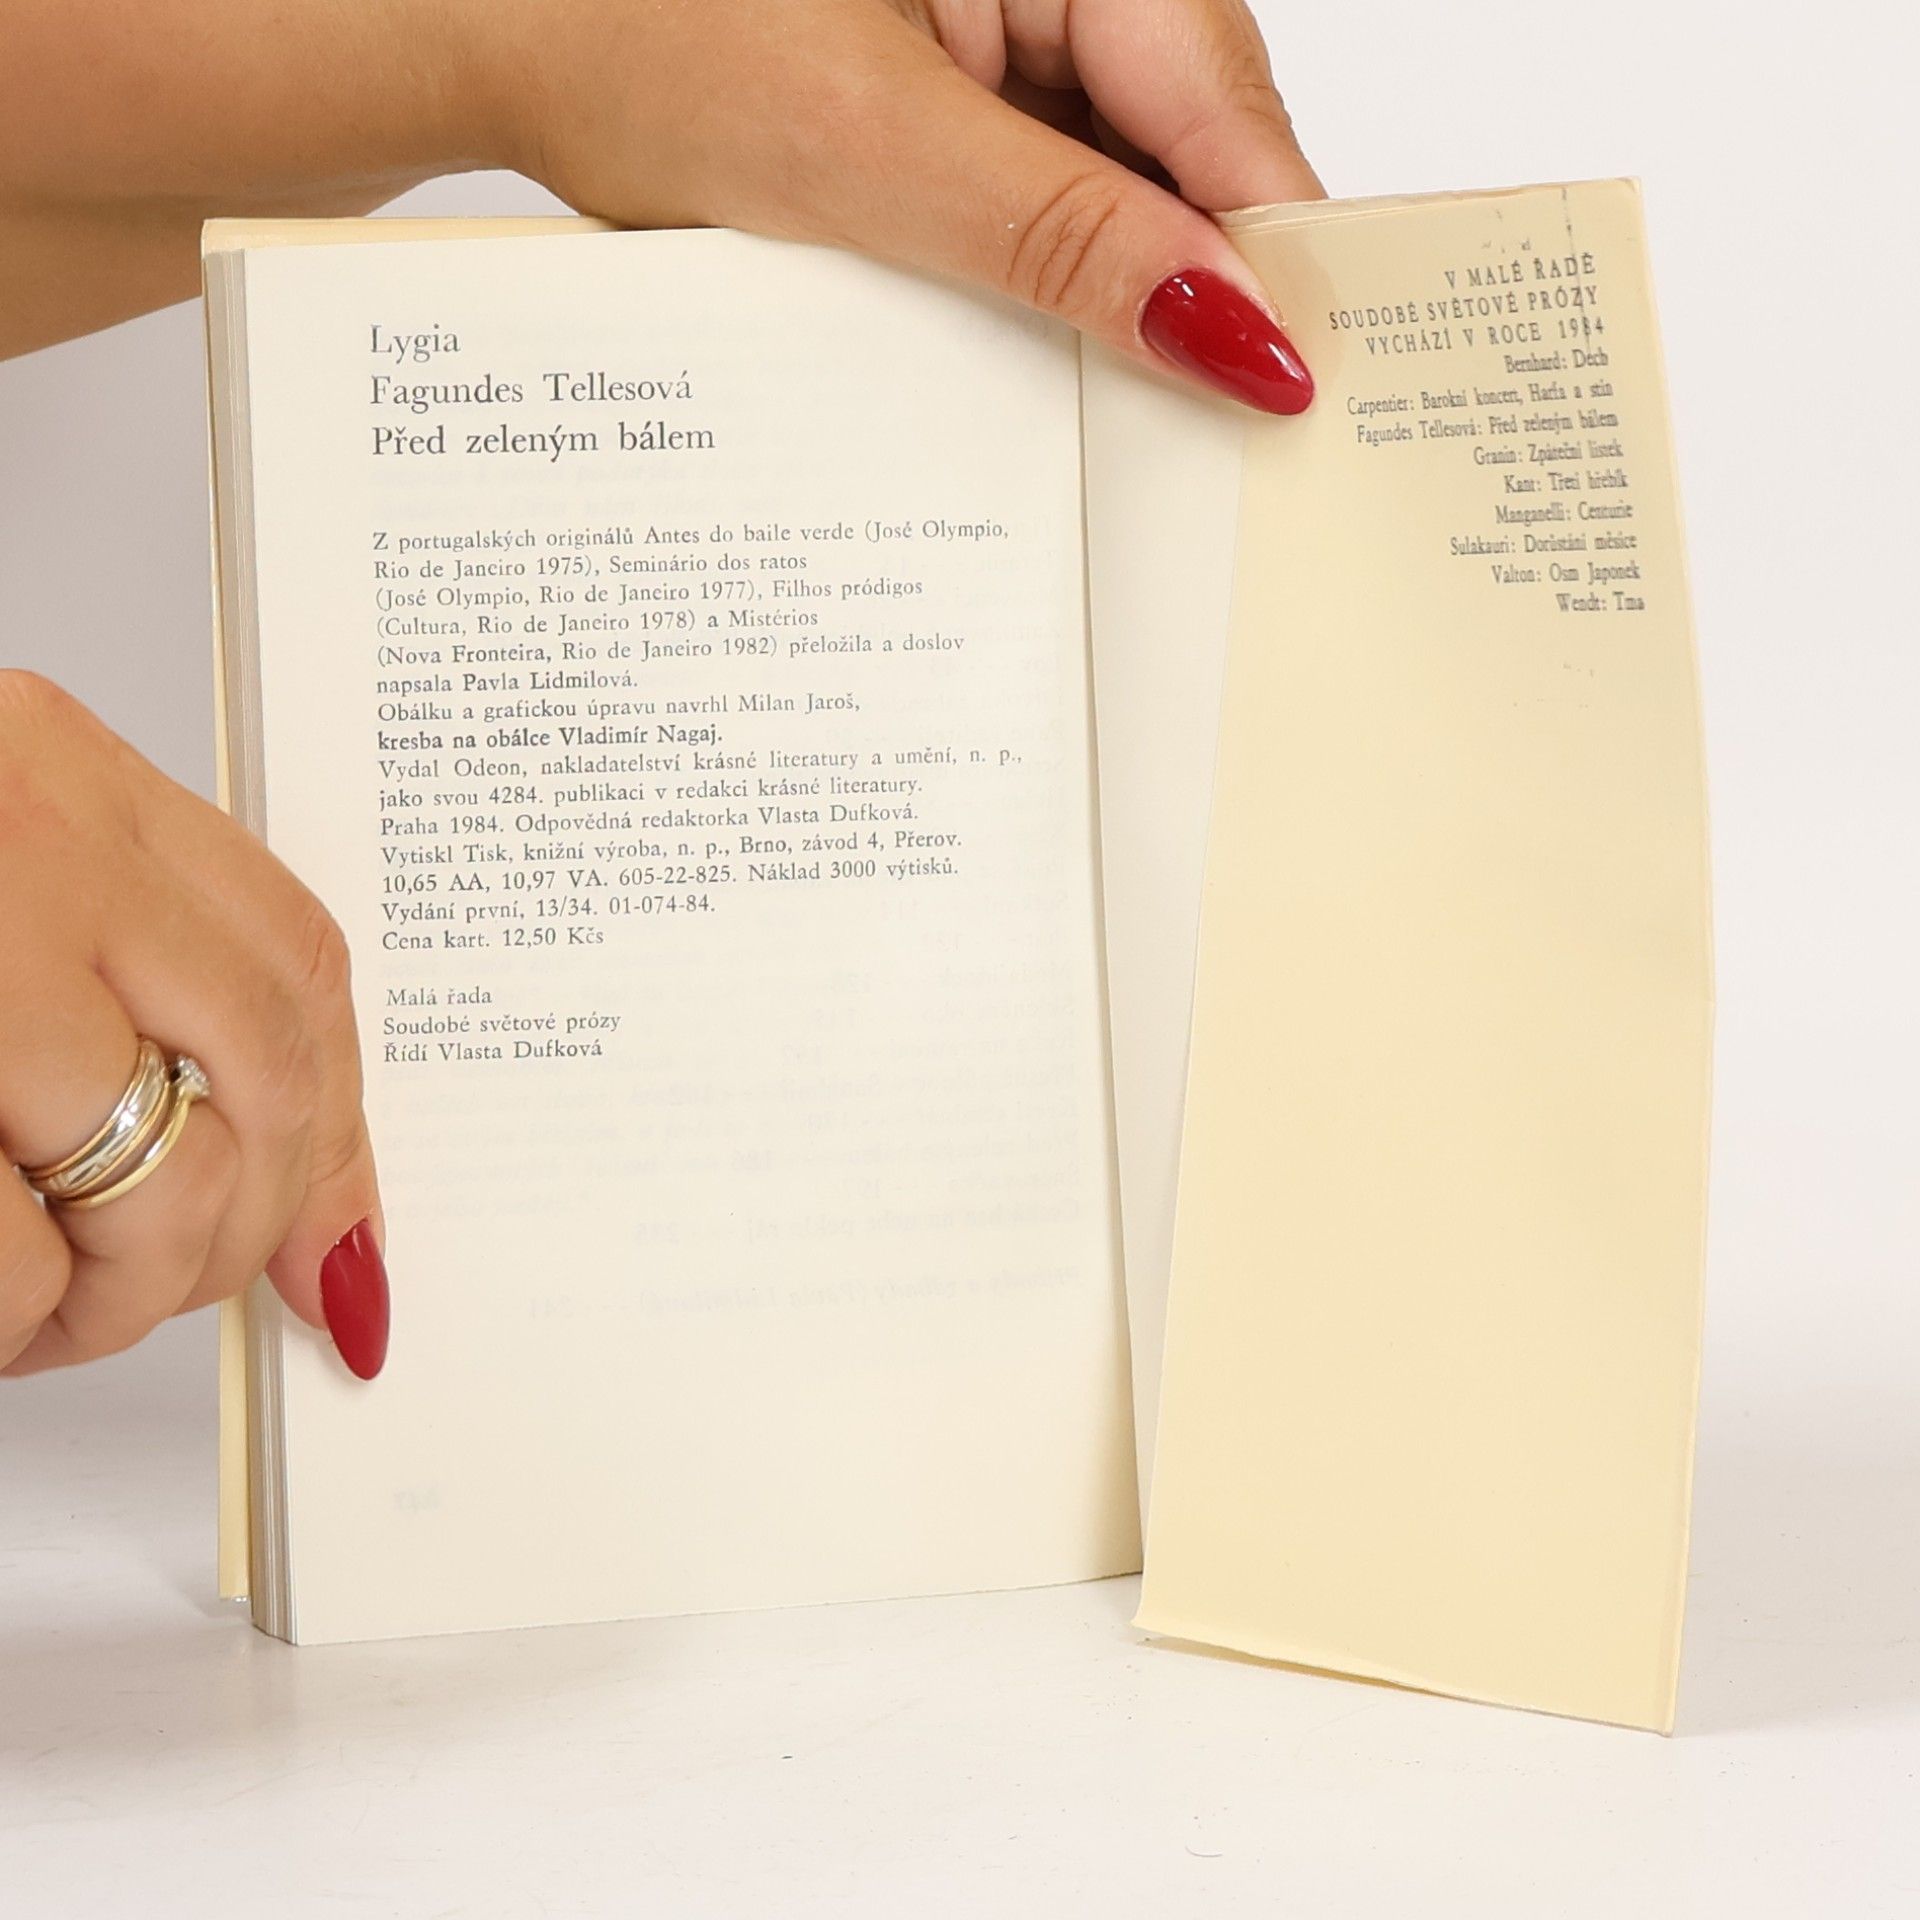 Lygia
Fagundes Tellesová
Před zeleným bálem
Z portugalských originálů Antes do baile verde (José Olympio,
Rio de Janeiro 1975), Seminário dos ratos
(José Olympio, Rio de Janeiro 1977), Filhos pródigos
(Cultura, Rio de Janeiro 1978) a Mistérios
(Nova Fronteira, Rio de Janeiro 1982) přeložila a doslov
napsala Pavla Lidmilová.
Obálku a grafickou úpravu navrhl Milan Jaroš,
kresba na obálce Vladimír Nagaj.
Vydal Odeon, nakladatelství krásné literatury a umění, n. p.,
jako svou 4284. publikaci v redakci krásné literatury.
Praha 1984. Odpovědná redaktorka Vlasta Dufková.
Vytiskl Tisk, knižní výroba, n. p., Brno, závod 4, Přerov.
10,65 AA, 10,97 VA. 605-22-825. Náklad 3000 výtisků.
Vydání první, 13/34. 01-074-84.
Cena kart. 12,50 Kčs
Malá řada
Soudobé světové prózy
Řídí Vlasta Dufková
V MALÉ ŘADĚ
SOUDOBÉ SVĚTOVÉ PRÓZY
VYCHÁZÍ V ROCE 1984
Bernhard: Dech
Carpentier: Barokní koncert, Harfa a stín
Fagundes Tellesová: Před zeleným bálem
Granin: Zpáteční lístek
Kant: Třetí hřebík
Manganelli: Centurie
Sulakauri: Dorůstání měsíce
Valton: Osm Japonek
Wendt: Tma